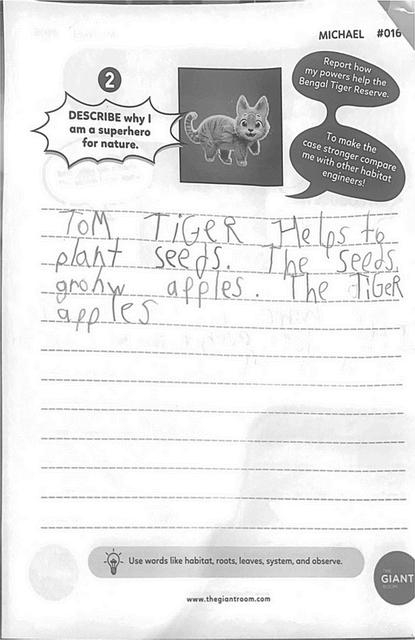 MICHAEL #016
2
DESCRIBE why I
am a superhero
for nature.
Report how
my powers help the
Bengal Tiger Reserve.
To make the
case stronger compare
me with other habitat
engineers!
ToM TiGER Helps to
plant seeds. The seeds
grohw apples. The TiGeR
apples
Use words like habitat, roots, leaves, system, and observe.
THE
GIANT
ROOM
www.thegiantroom.com